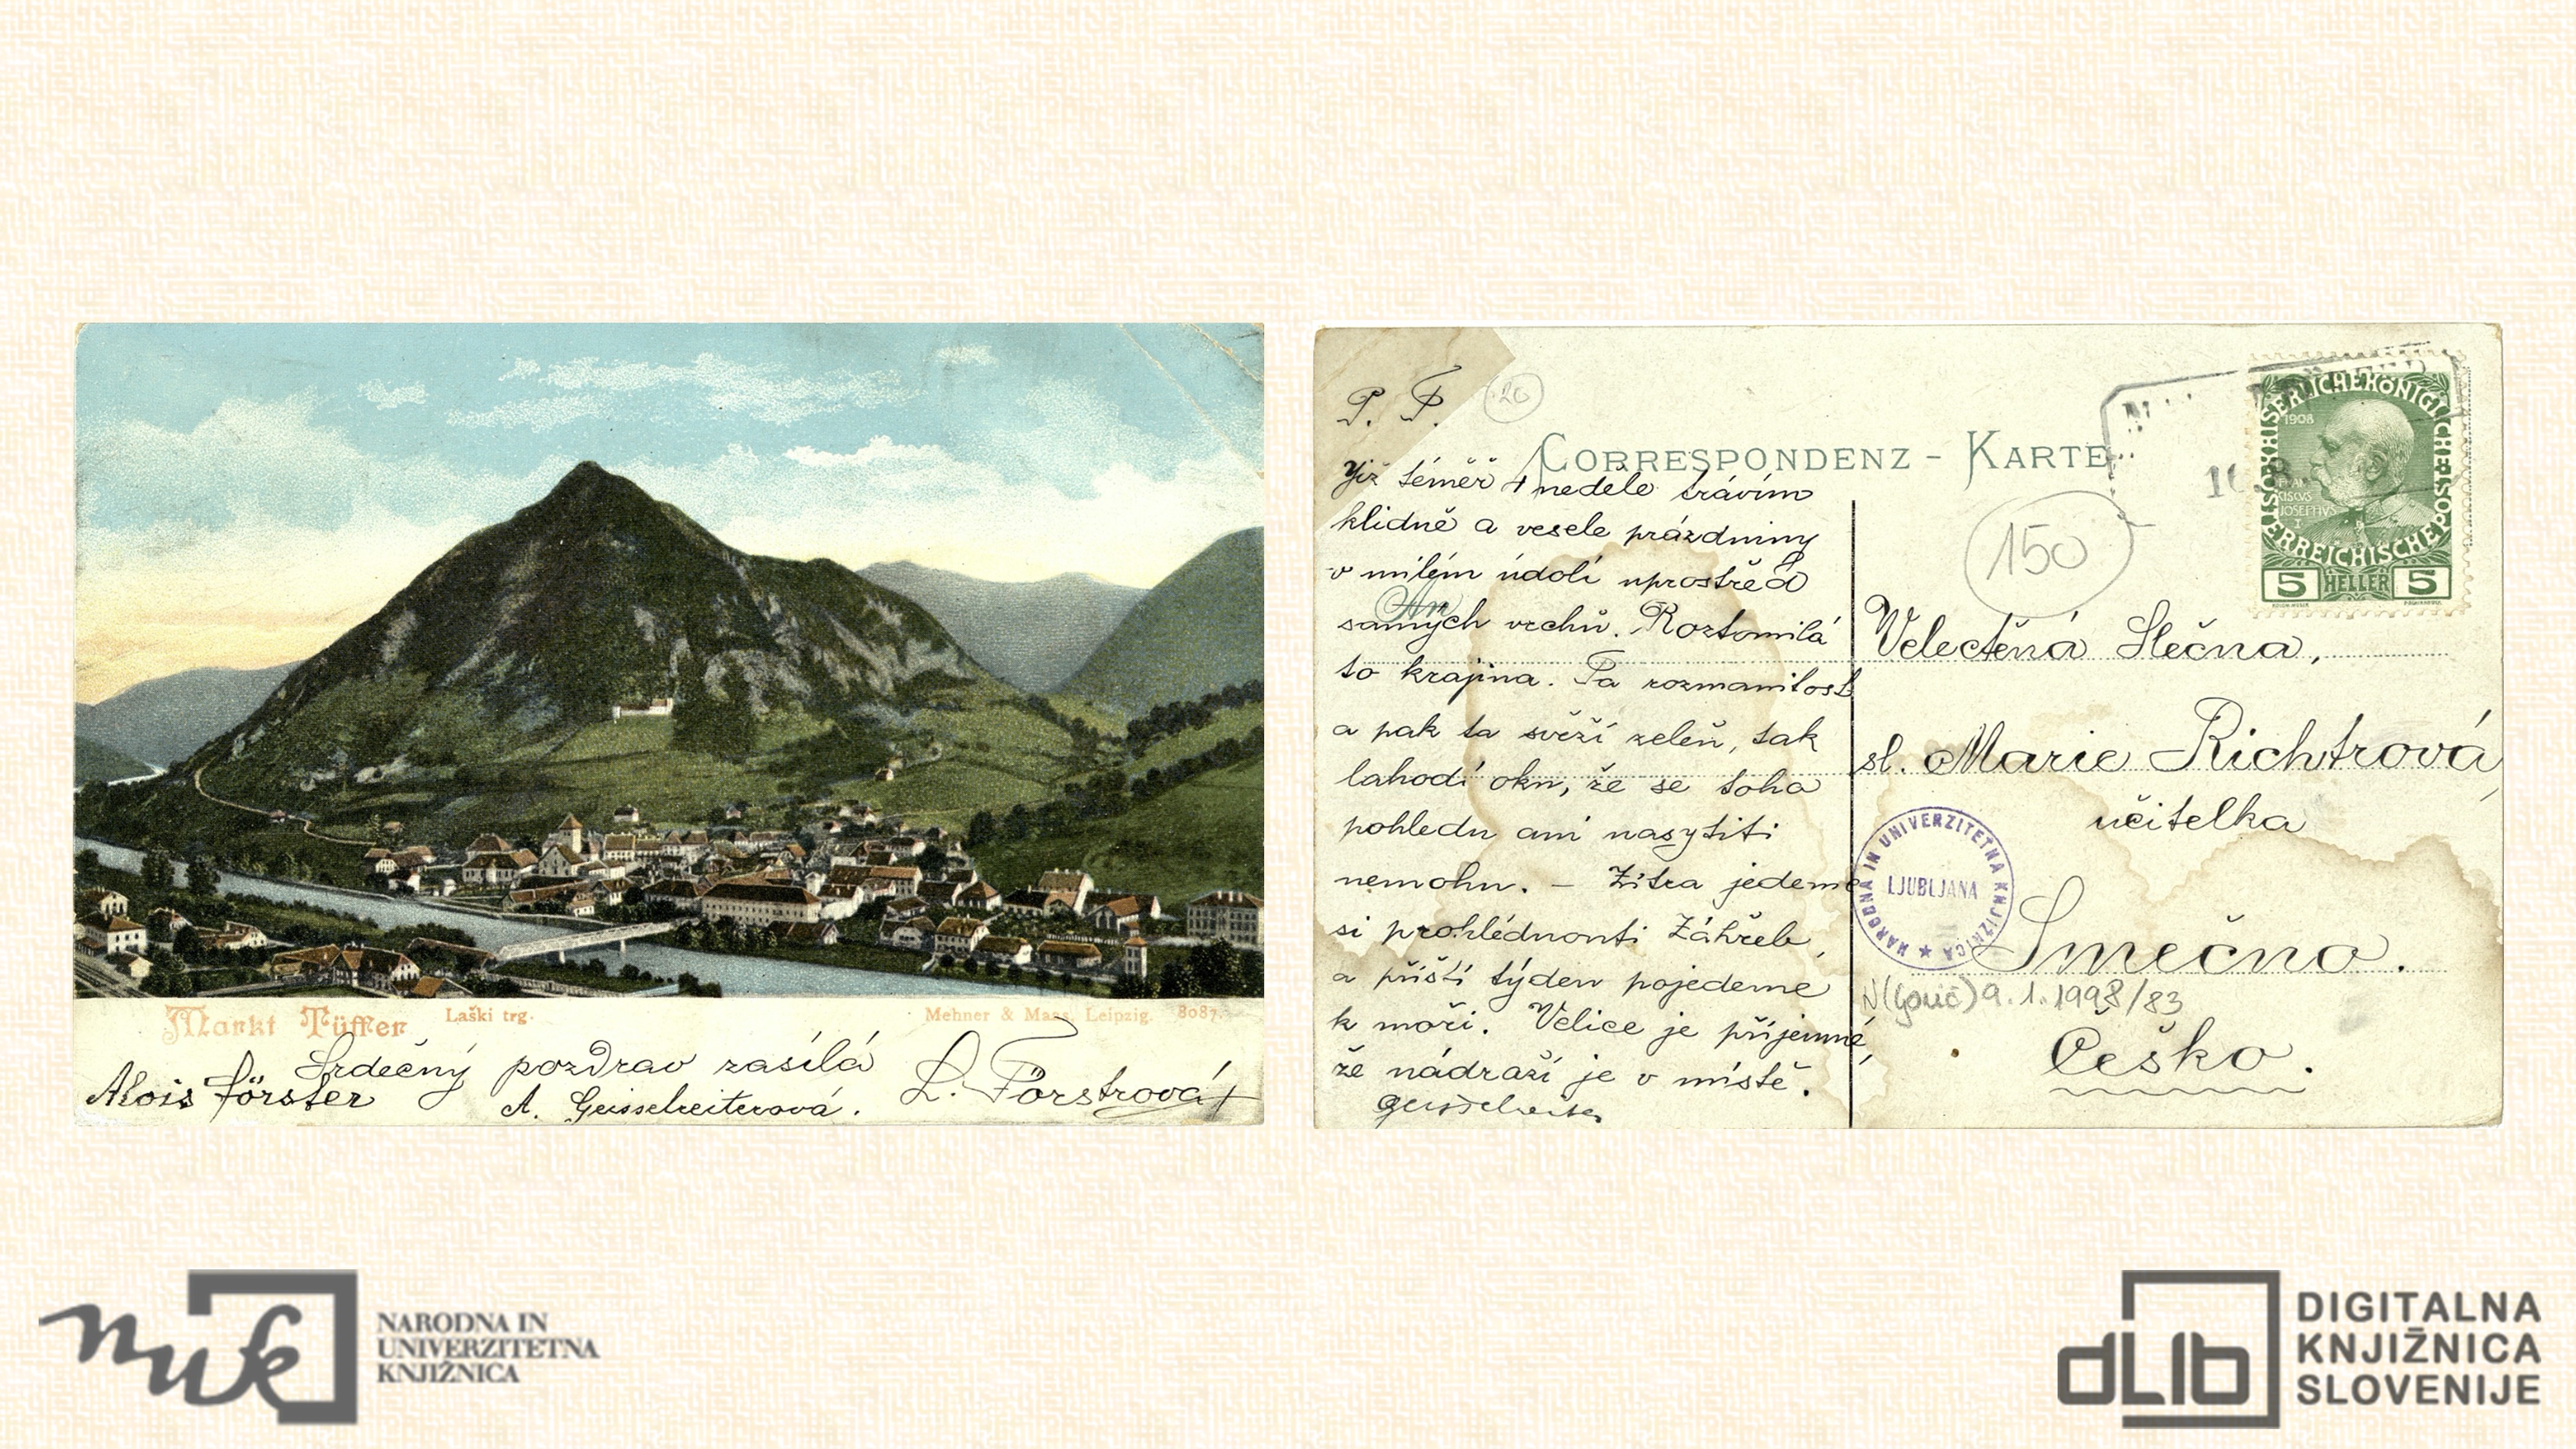 Markt Tüffer
Laški trg.
Mehner & Maas, Leipzig. 8087.
Srdečný pozdrav zasílá
Alois Förster
A. Geisselreiterová.
L. Förstrová
P. P.
20
CORRESPONDENZ - KARTE
Již téměř 4 neděle trávím
klidně a vesele prázdniny
v milém údolí uprostřed
samých vrchů. Roztomilá
to krajina. Ta rozmanitost
a pak ta svěží zeleň, tak
lahodí oku, že se toho
pohledu ani nasytiti
nemohu. – Zítra jedeme
si prohlédnouti Záhřeb,
a příští týden pojedeme
k moři. Velice je příjemné,
že nádraží je v místě.
Geisselreiter
An
150
KAISERLICHE KÖNIGLICHE ÖSTERREICHISCHE POST
1908
FRANCISCVS JOSEPHVS I
5 HELLER 5
Velectěná Slečna,
sl. Marie Richtrová,
učitelka
Smečno.
NARODNA IN UNIVERZITETNA KNJIŽNICA ★
LJUBLJANA
9.1.1998/83
Česko.
nuk
NARODNA IN
UNIVERZITETNA
KNJIŽNICA
dLib
DIGITALNA
KNJIŽNICA
SLOVENIJE